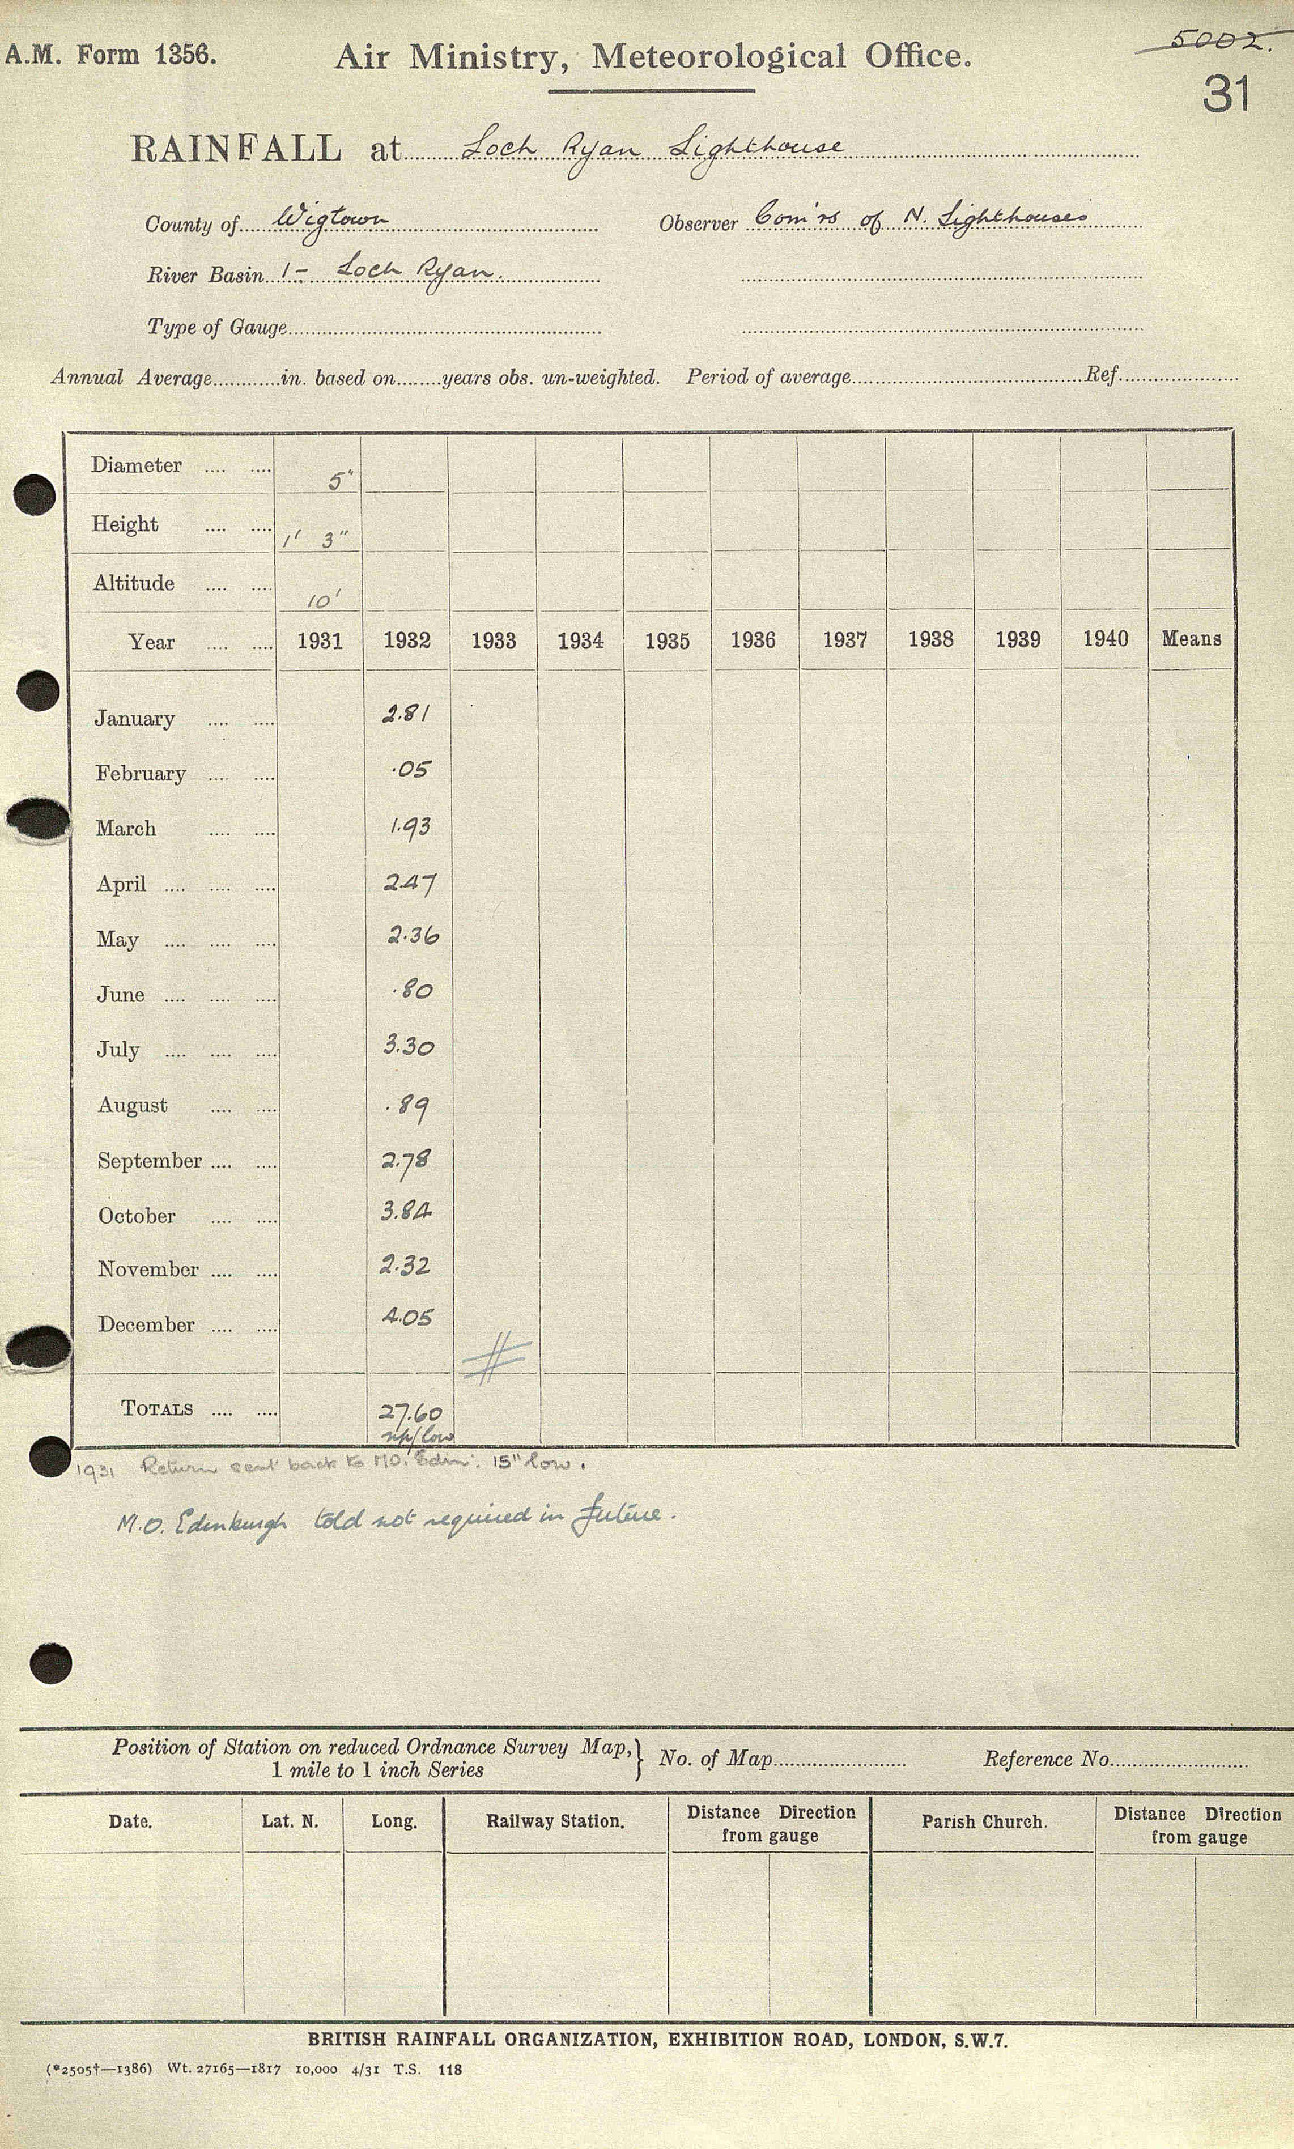 A.M. Form 1356. Air Ministry, Meteorological Office. 5002.
31
RAINFALL at Loch Ryan Lighthouse
County of Wigtown Observer Com'rs of N. Lighthouses
River Basin 1- Loch Ryan.
Type of Gauge
Annual Average in. based on years obs. un-weighted. Period of average Ref.
Diameter 5"
Height 1' 3"
Altitude 10'
Year 1931 1932 1933 1934 1935 1936 1937 1938 1939 1940 Means
January 2.81
February .05
March 1.93
April 2.47
May 2.36
June .80
July 3.30
August .89
September 2.78
October 3.84
November 2.32
December 4.05
TOTALS 27.60
np/low
1931 Return sent back to MO. Edin. 15" low.
M.O. Edinburgh told not required in future.
Position of Station on reduced Ordnance Survey Map, } No. of Map Reference No.
1 mile to 1 inch Series
Date. Lat. N. Long. Railway Station. Distance Direction Parish Church. Distance Direction
from gauge from gauge
BRITISH RAINFALL ORGANIZATION, EXHIBITION ROAD, LONDON, S.W.7.
(*2505†—1386) Wt. 27165—1817 10,000 4/31 T.S. 118